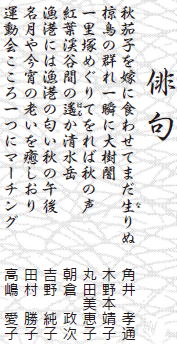 俳句
秋茄子を嫁に食わせてまだ生りぬ 角井 孝通
椋鳥の群れ一瞬に大樹闇 木野本靖子
一里塚めぐりてをれば秋の声 丸田美恵子
紅葉渓谷間の遙か清水岳 朝倉 政次
漁港には漁港の匂い秋の午後 吉野 純子
名月や今宵の老いを癒しおり 田村 勝子
運動会こころ一つにマーチング 高嶋 愛子